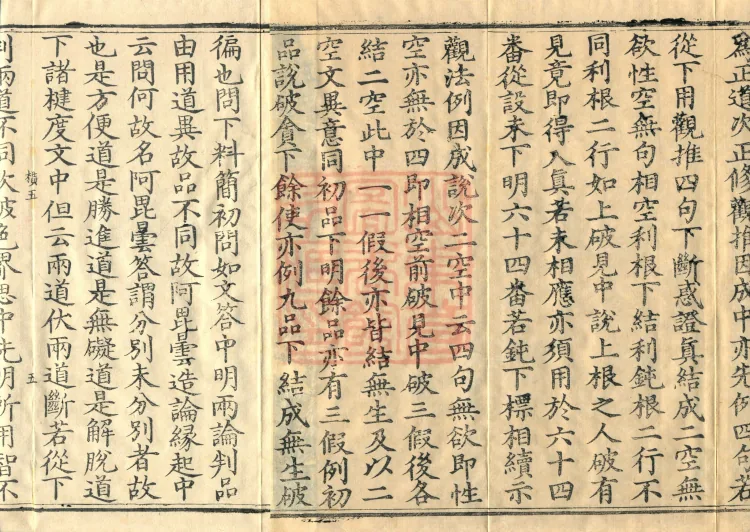 爲正道次正修觀推因成中亦先例四句若
從下用觀推四句下斷惑證眞結成二空無
欲性空無句相空利根下結利鈍根二行不
同利根二行如上破見中說上根之人破有
見竟即得入眞若未相應亦須用於六十四
番從設未下明六十四番若鈍下標相續示
觀法例因成說次二空中云四句無欲即性
空亦無於四即相空前破見中破三假後各
結二空此中一一假後亦皆結無生及以二
空文異意同初品下明餘品亦有三假例初
品說破貪下餘使亦例九品下結成無生破
徧也問下料簡初問如文答中明兩論判品
由用道異故品不同故阿毘曇造論緣起中
云問何故名阿毘曇答謂分別未分別者故
也是方便道是勝進道是無礙道是解脫道
橫五
五
下諸犍度文中但云兩道伏兩道斷若從下
判兩道不同次破色界思中先明所用智不